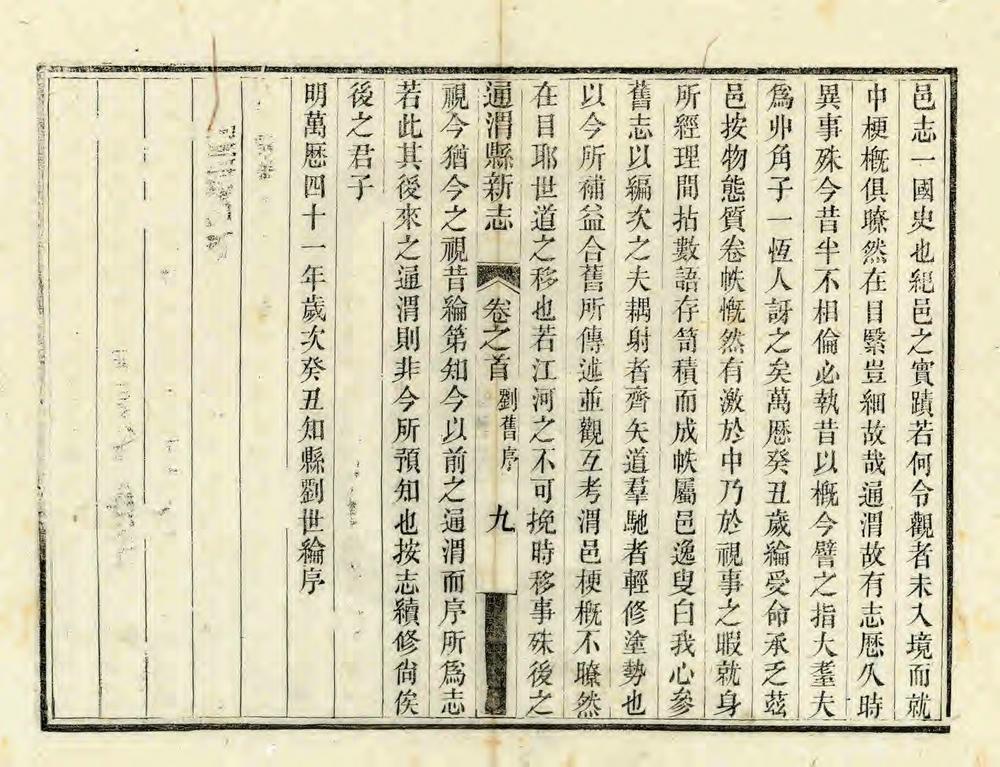 邑志一國史也緄邑之實蹟若何令觀者未入境而就
中梗概俱暸然在目緊豈細故哉通渭故有志歷久時
異事殊今昔半不相倫必執昔以概今譬之指大耋夫
爲丱角子一恆人訝之矣萬厯癸丑歲綸受命承乏茲
邑按物態質卷帙慨然有激於中乃於視事之暇就身
所經理間拈數語存笥積而成帙屬邑逸叟白我心參
舊志以編次之夫耦射者齊矢道羣馳者輕修塗勢也
以今所補益合舊所傳述並觀互考渭邑梗概不暸然
在目耶世道之移也若江河之不可挽時移事殊後之
通渭縣新志 卷之首 劉舊序 九
視今猶今之視昔綸第知今以前之通渭而序所爲志
若此其後來之通渭則非今所預知也按志續修尙俟
後之君子
明萬厯四十一年歲次癸丑知縣劉世綸序